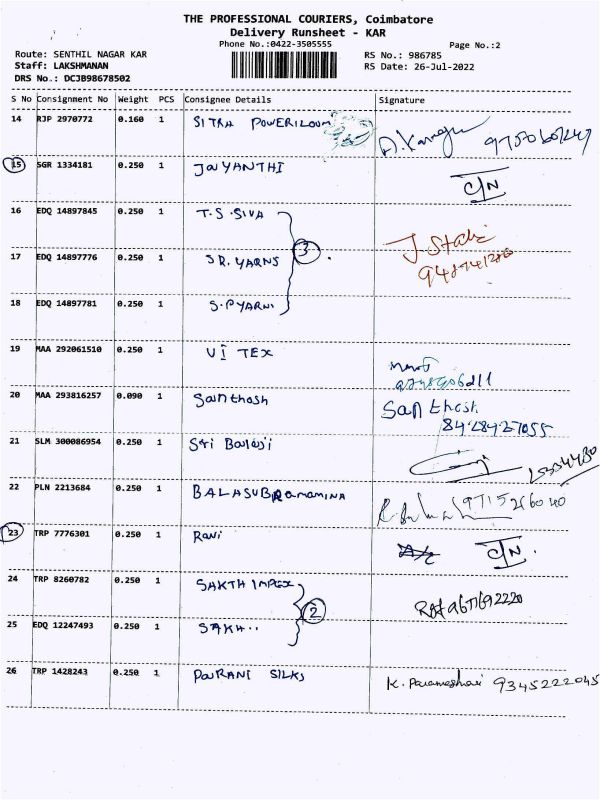 THE PROFESSIONAL COURIERS, Coimbatore
Delivery Runsheet - KAR
Phone No.:0422-3505555
Page No.:2
Route: SENTHIL NAGAR KAR
RS No.: 986785
Staff: LAKSHMANAN
RS Date: 26-Jul-2022
DRS No.: DCJB98678502
S No Consignment No Weight PCS Consignee Details Signature
14 RJP 2970772 0.160 1 SITRA POWERLOOM
15 SGR 1334181 0.250 1 JAYANTHI C/N
16 EDQ 14897845 0.250 1 T.S.SIVA
17 EDQ 14897776 0.250 1 SR.YARNS 3
18 EDQ 14897781 0.250 1 S.PYARN
19 MAA 292061510 0.250 1 VI TEX
20 MAA 293816257 0.090 1 Santhosh Santhosh
8428427055
21 SLM 300086954 0.250 1 Sri Balaji
22 PLN 2213684 0.250 1 BALASUBRAMAMINA
23 TRP 7776301 0.250 1 Rani A/C C/N.
24 TRP 8260782 0.250 1 SAKTH IMPEX
2
25 EDQ 12247493 0.250 1 SAKH..
26 TRP 1428243 0.250 1 POURANI SILKS K. Parameshwari 9345222045